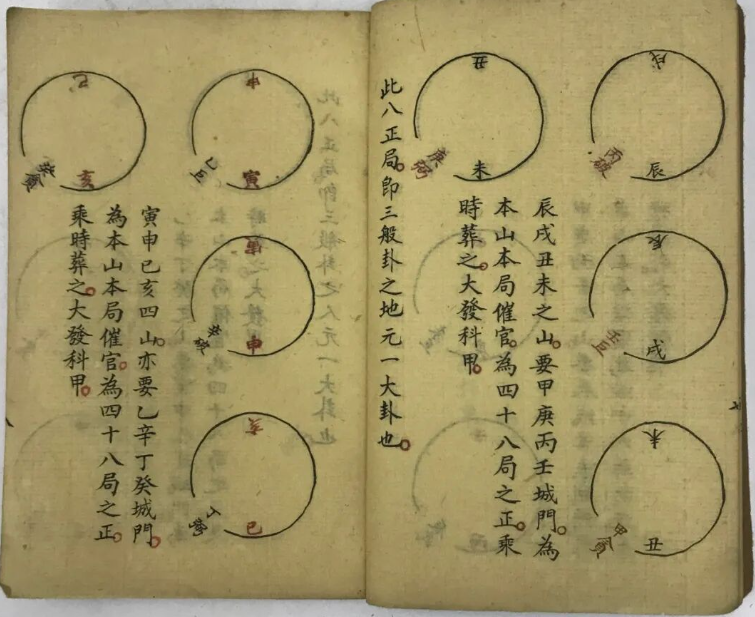 戌
辰
丙破
辰
戌
壬巨
未
丑
甲
丑
未
庚弼
辰戌丑未之山。要甲庚丙壬城門。為
本山本局催官。為四十八局之正。乘
時葬之。大發科甲。
此八正局。即三般卦之地元一大卦也。
申
寅
乙巨
寅
申
亥
巳
丁
巳
亥
寅申巳亥四山。亦要乙辛丁癸城門。
為本山本局催官。為四十八局之正。
乘時葬之。大發科甲。